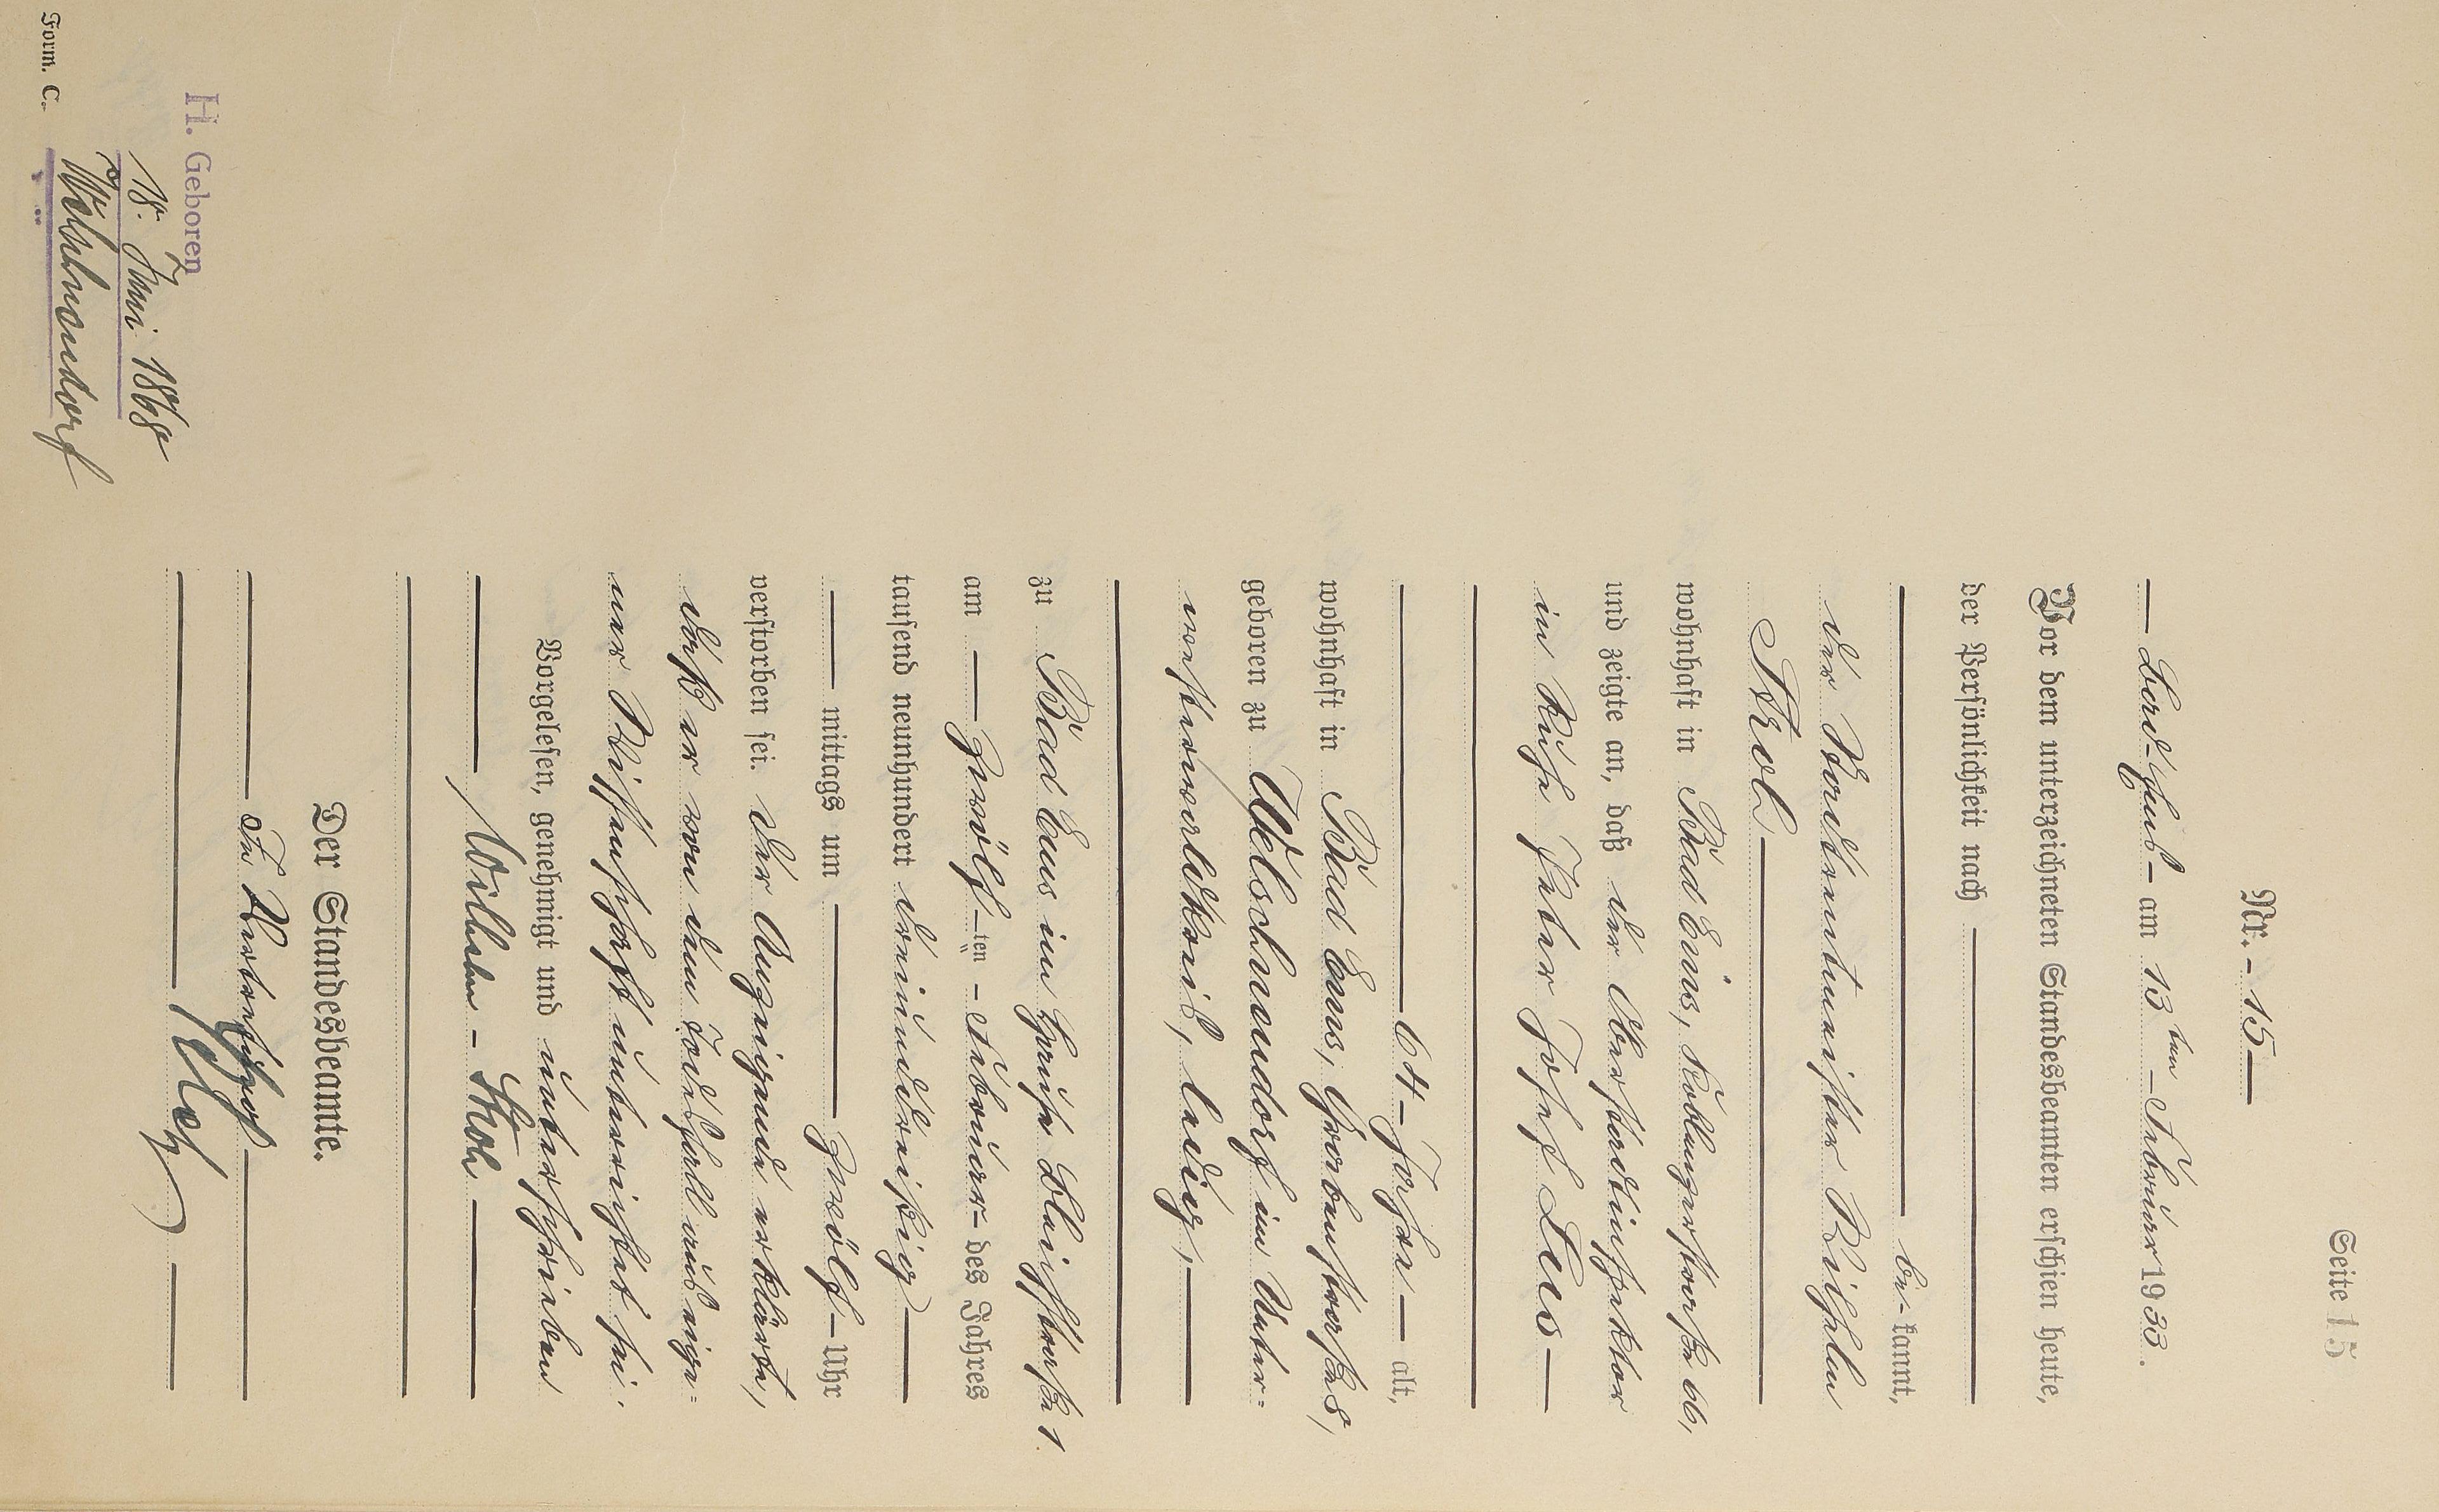 Seite 15
Nr. - 15 —
— Bad Ems - am 13ten - Februar 1933.
Vor dem unterzeichneten Standesbeamten erschien heute,
der Persönlichkeit nach
be- kannt,
der Wilhelm
Stroh
wohnhaft in Bad Ems, Koblenzerstraße 66,
und zeigte an, daß der
in Ruhe Peter Josef Leus —
64 - Jahre — alt,
wohnhaft in Bad Ems, 8,
geboren zu Welschneudorf im Unter-
westerwaldkreis, ledig, —
zu Bad Ems im Hause Bleichstraße 1.
am — zwölf -ten - Februar - des Jahres
tausend neunhundert dreiunddreißig —
— mittags um — zwölf - Uhr
verstorben sei. Der Anzeigende erklärte,
daß er von dem Todesfall aus eige-
ner Wissenschaft unterrichtet sei.
Vorgelesen, genehmigt und unterschrieben
— Wilhelm - Stroh —
Der Standesbeamte.
In Vertretung
H. Geboren
18. Juni 1868
Welschneudorf
Form. C.